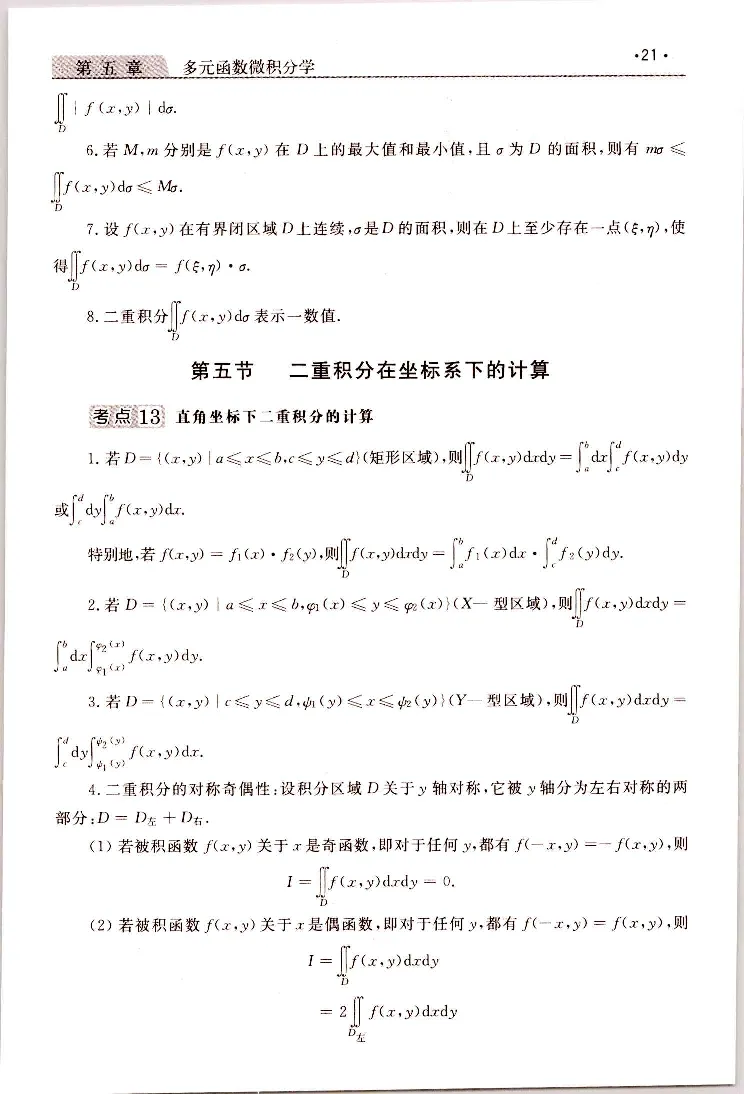 ·21·
第五章 多元函数微积分学
∬_D | f(x,y) | dσ.
6. 若 M,m 分别是 f(x,y) 在 D 上的最大值和最小值,且 σ 为 D 的面积,则有 mσ ⩽
∬_D f(x,y)dσ ⩽ Mσ.
7. 设 f(x,y) 在有界闭区域 D 上连续,σ是 D 的面积,则在 D 上至少存在一点(ξ,η),使
得∬_D f(x,y)dσ = f(ξ,η)·σ.
8. 二重积分∬_D f(x,y)dσ 表示一数值.
第五节 二重积分在坐标系下的计算
考点 13 直角坐标下二重积分的计算
1. 若 D = {(x,y) | a⩽x⩽b,c⩽y⩽d}(矩形区域),则∬_D f(x,y)dxdy = ∫_a^b dx∫_c^d f(x,y)dy
或∫_c^d dy∫_a^b f(x,y)dx.
特别地,若 f(x,y) = f₁(x)·f₂(y),则∬_D f(x,y)dxdy = ∫_a^b f₁(x)dx·∫_c^d f₂(y)dy.
2. 若 D = {(x,y) | a ⩽ x ⩽ b,φ₁(x) ⩽ y ⩽ φ₂(x)}(X— 型区域),则∬_D f(x,y)dxdy =
∫_a^b dx∫_{φ₁(x)}^{φ₂(x)} f(x,y)dy.
3. 若 D = {(x,y) | c ⩽ y ⩽ d,ψ₁(y) ⩽ x ⩽ ψ₂(y)}(Y— 型区域),则∬_D f(x,y)dxdy =
∫_c^d dy∫_{ψ₁(y)}^{ψ₂(y)} f(x,y)dx.
4. 二重积分的对称奇偶性:设积分区域 D 关于 y 轴对称,它被 y 轴分为左右对称的两
部分:D = D左 + D右.
(1) 若被积函数 f(x,y) 关于 x 是奇函数,即对于任何 y,都有 f(-x,y) =- f(x,y),则
I = ∬_D f(x,y)dxdy = 0.
(2) 若被积函数 f(x,y) 关于 x 是偶函数,即对于任何 y,都有 f(-x,y) = f(x,y),则
I = ∬_D f(x,y)dxdy
= 2∬_{D左} f(x,y)dxdy